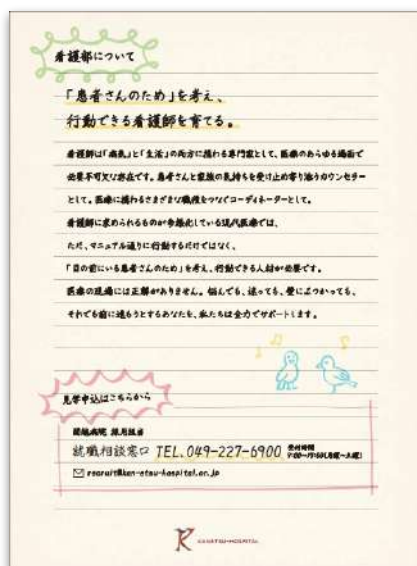 看護部について
「患者さんのため」を考え、
行動できる看護師を育てる。
看護師は「病気」と「生活」の両方に携わる専門家として、医療のあらゆる場面で
必要不可欠な存在です。患者さんと家族の気持ちを受け止め寄り添うカウンセラー
として。医療に携わるさまざまな職種をつなぐコーディネーターとして。
看護師に求められるものが多様化している現代医療では、
ただ、マニュアル通りに行動するだけではなく、
「目の前にいる患者さんのため」を考え、行動できる人材が必要です。
医療の現場には正解がありません。悩んでも、迷っても、壁にぶつかっても、
それでも前に進もうとするあなたを、私たちは全力でサポートします。
見学申込はこちらから
関越病院 採用担当
就職相談窓口 TEL.049-227-6900 受付時間
9:00〜17:00(月曜〜土曜)
recruit@kan-etsu-hospital.or.jp
KANETSU-HOSPITAL